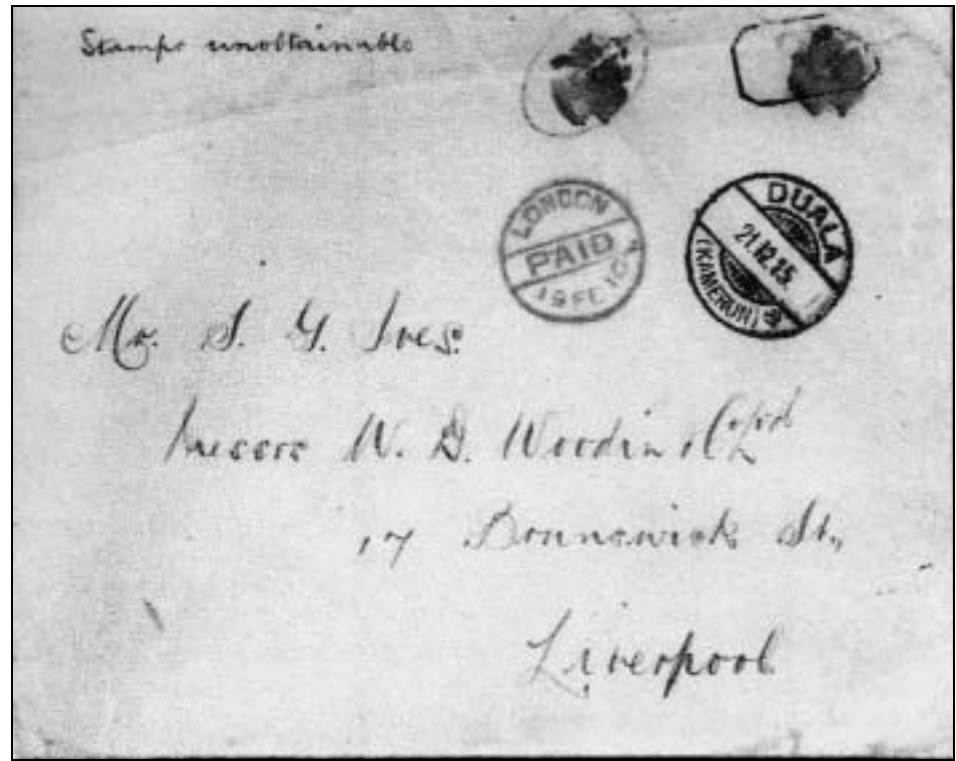 Stamps unobtainable
LONDON
PAID
19 FE 16
DUALA
21.12.15.
(KAMERUN)
Mr. S. G. Ives.
Messrs W. D. Woodin & Co Ltd
17 Brunswick St.,
Liverpool